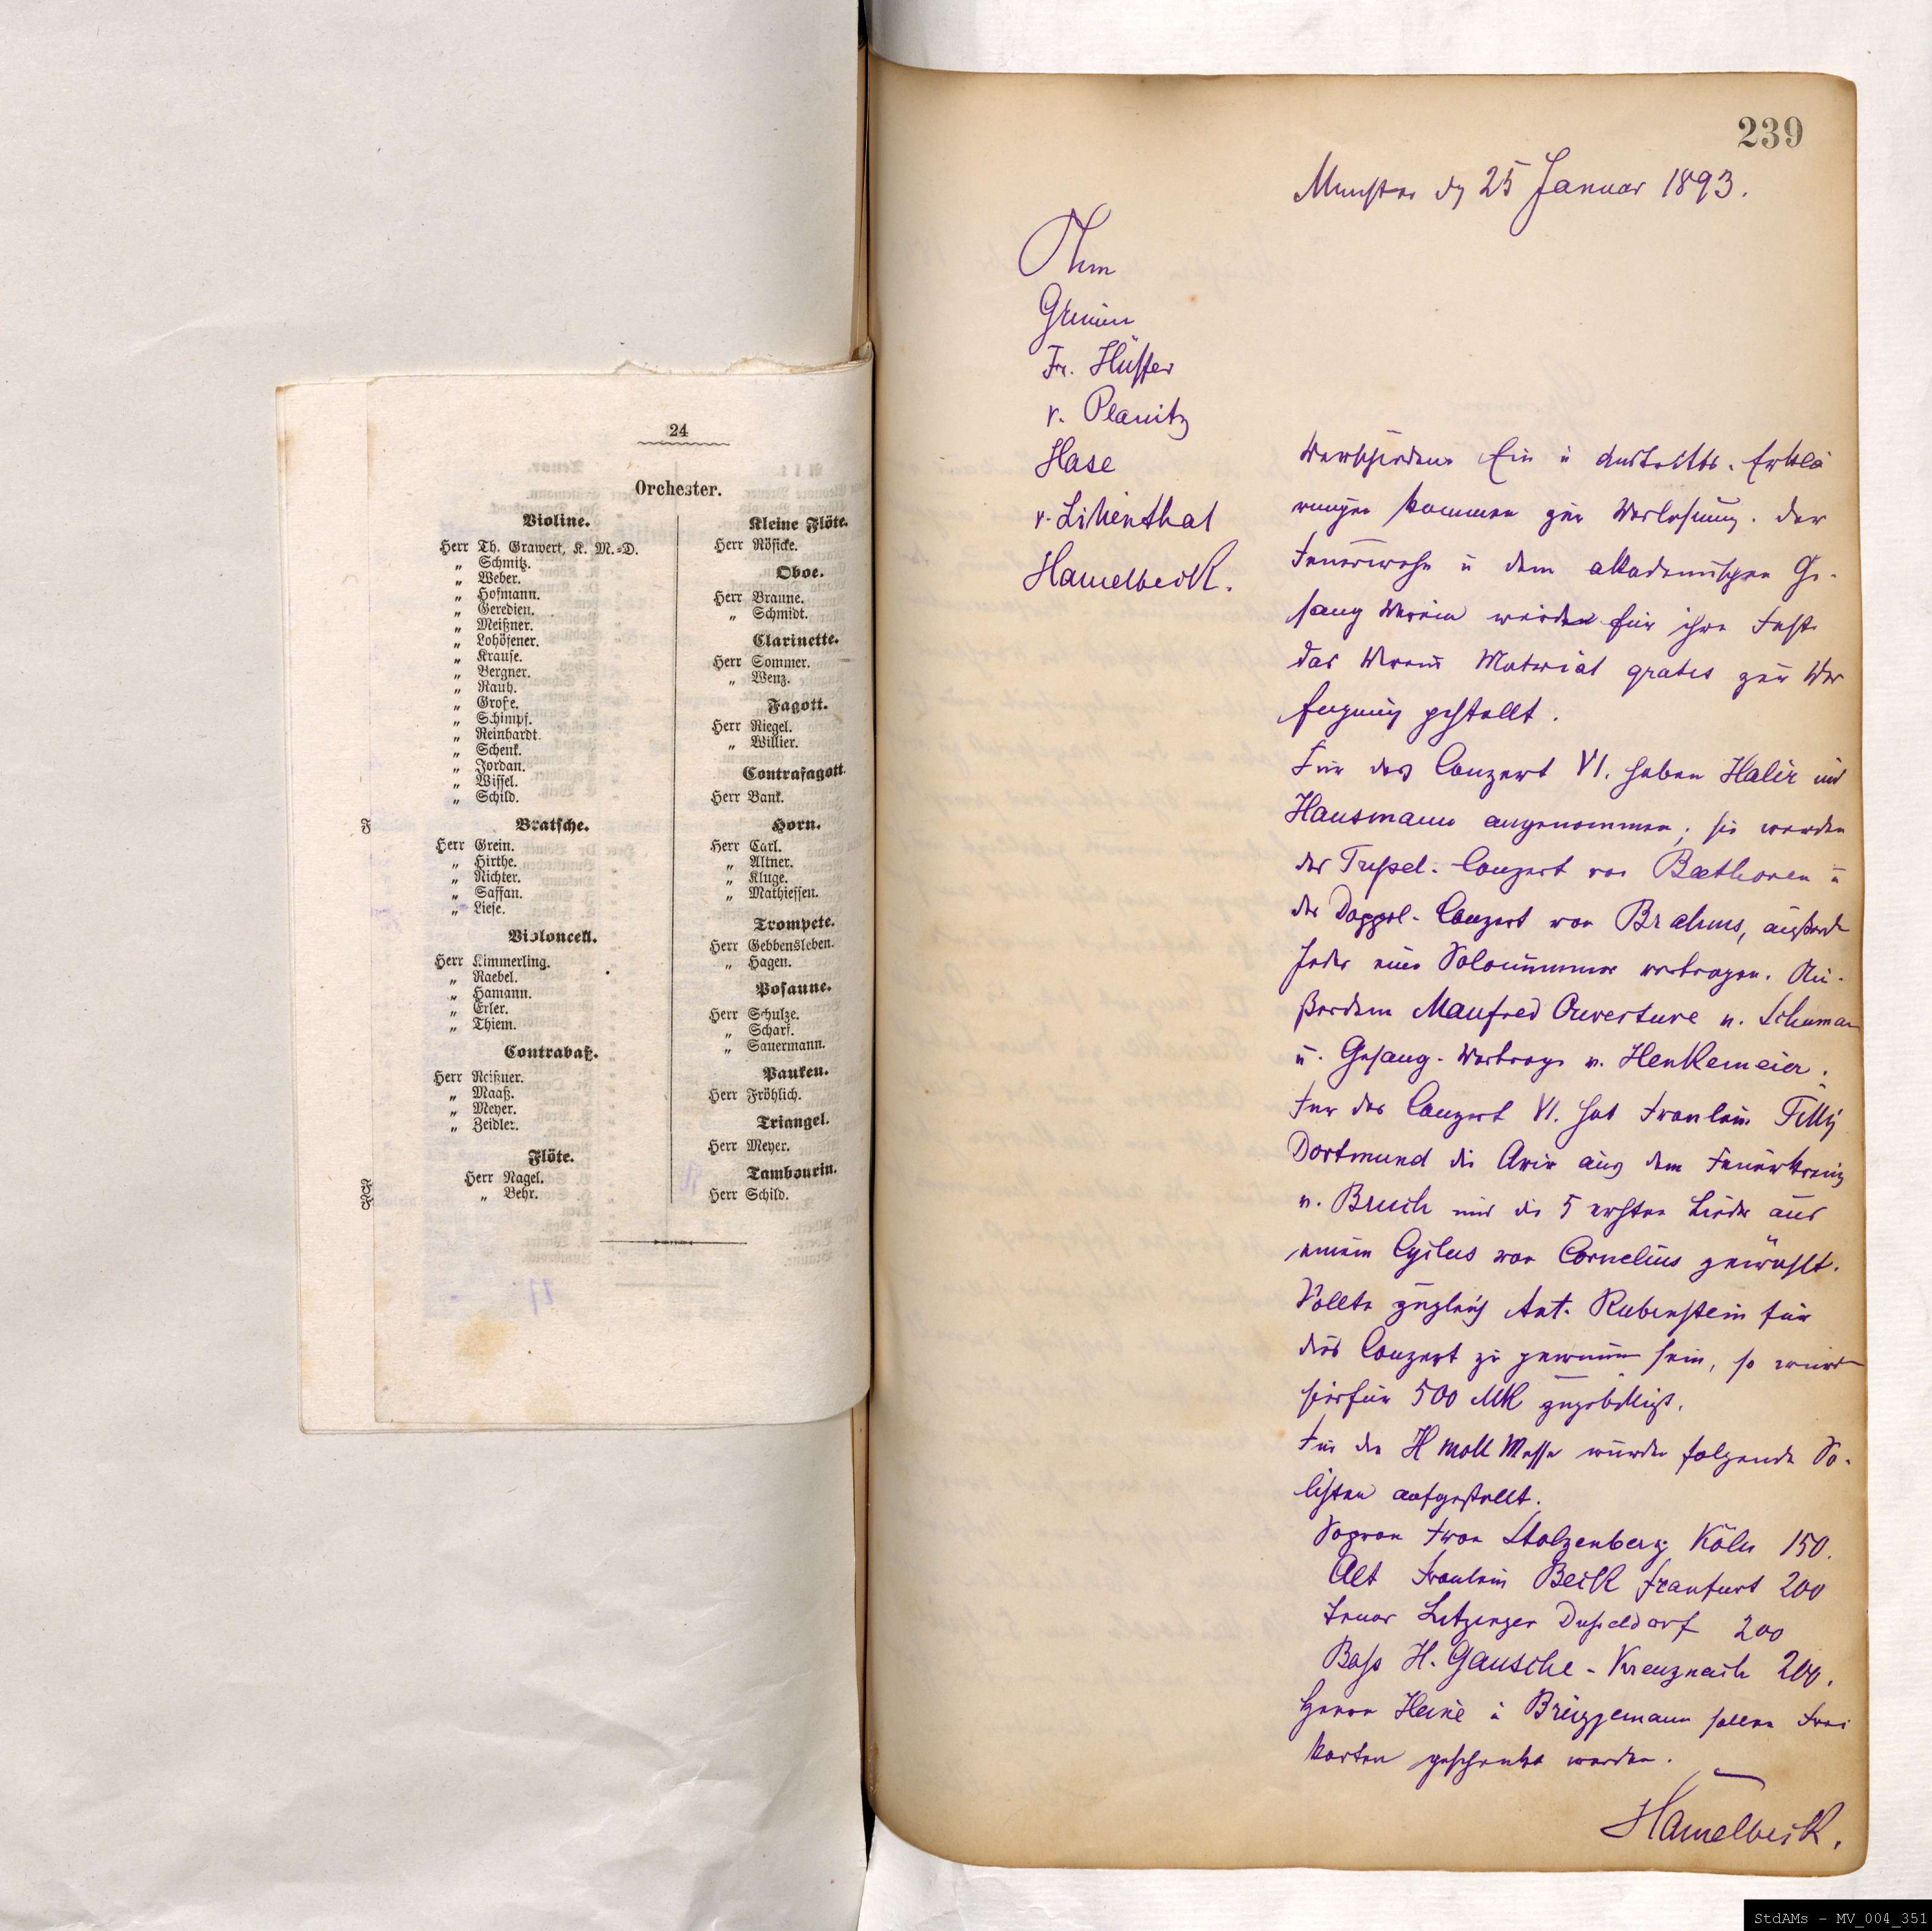 24
Orchester.
Violine.
Herr Th. Grawert, K. M.=D.
„ Schmitz.
„ Weber.
„ Hofmann.
„ Geredien.
„ Meißner.
„ Lohöfener.
„ Krause.
„ Bergner.
„ Rauh.
„ Grofe.
„ Schimpf.
„ Reinhardt.
„ Schenk.
„ Jordan.
„ Wissel.
„ Schild.
Bratsche.
Herr Grein.
„ Hirthe.
„ Richter.
„ Saffan.
„ Liese.
Violoncell.
Herr Kimmerling.
„ Raebel.
„ Hamann.
„ Erler.
„ Thiem.
Contrabaß.
Herr Reißner.
„ Maaß.
„ Meyer.
„ Zeidler.
Flöte.
Herr Nagel.
„ Behr.
Kleine Flöte.
Herr Rösicke.
Oboe.
Herr Braune.
„ Schmidt.
Clarinette.
Herr Sommer.
„ Wenz.
Fagott.
Herr Riegel.
„ Willier.
Contrafagott
Herr Bank.
Horn.
Herr Carl.
„ Altner.
„ Kluge.
„ Mathiessen.
Trompete.
Herr Gebbensleben.
„ Hagen.
Posaune.
Herr Schulze.
„ Scharf.
„ Sauermann.
Pauken.
Herr Fröhlich.
Triangel.
Herr Meyer.
Tambourin.
Herr Schild.
239
Munster dn 25 Januar 1893.
Ohm
Grimm
Fr. Hüffer
v. Planitz
Hase
v. Lilienthal
Hamelbeck.
Verschiedene Ein u Austritts-Erklä
rungen kommen zur Verlesung. Der
Feuerwehr u dem akademischen Ge-
sang Verein werden für ihre Feste
das Vereins Material gratis zur Ver
fugung gestellt.
Für das Conzert VI. haben Halir und
Hausmann angenommen; sie werden
das Trippel-Conzert von Beethoven u
das Doppel-Conzert von Brahms, außerdem
Jeder eine Solonummer vortragen. Au-
ßerdem Manfred Ouverture v. Schuman
u. Gesang-Vortrage v. Henkemeier.
Fur das Conzert VI. hat Fraulein Tilly
Dortmund die Arie aus dem Feuerkreuz
v. Bruch und die 5 ersten Lieder aus
einem Cyclus von Cornelius gewählt.
Sollte zugleich Ant. Rubenstein für
dies Conzert zu gewinnen sein, so wird
hierfür 500 Mk zugebilligt.
Für die H moll Messe wurden folgende So-
listen aufgestellt.
Sopran Frau Stolzenberg Köln 150.
Alt Fraulein Beck Franfurt 200
Tenor Litzinger Dusseldorf 200
Bass H. Gausche - Kreuznach 200.
Herrn Heine u Brüggemann sollen Frei
karten geschenkt werden.
Hamelbeck.
StdAMs – MV_004_351